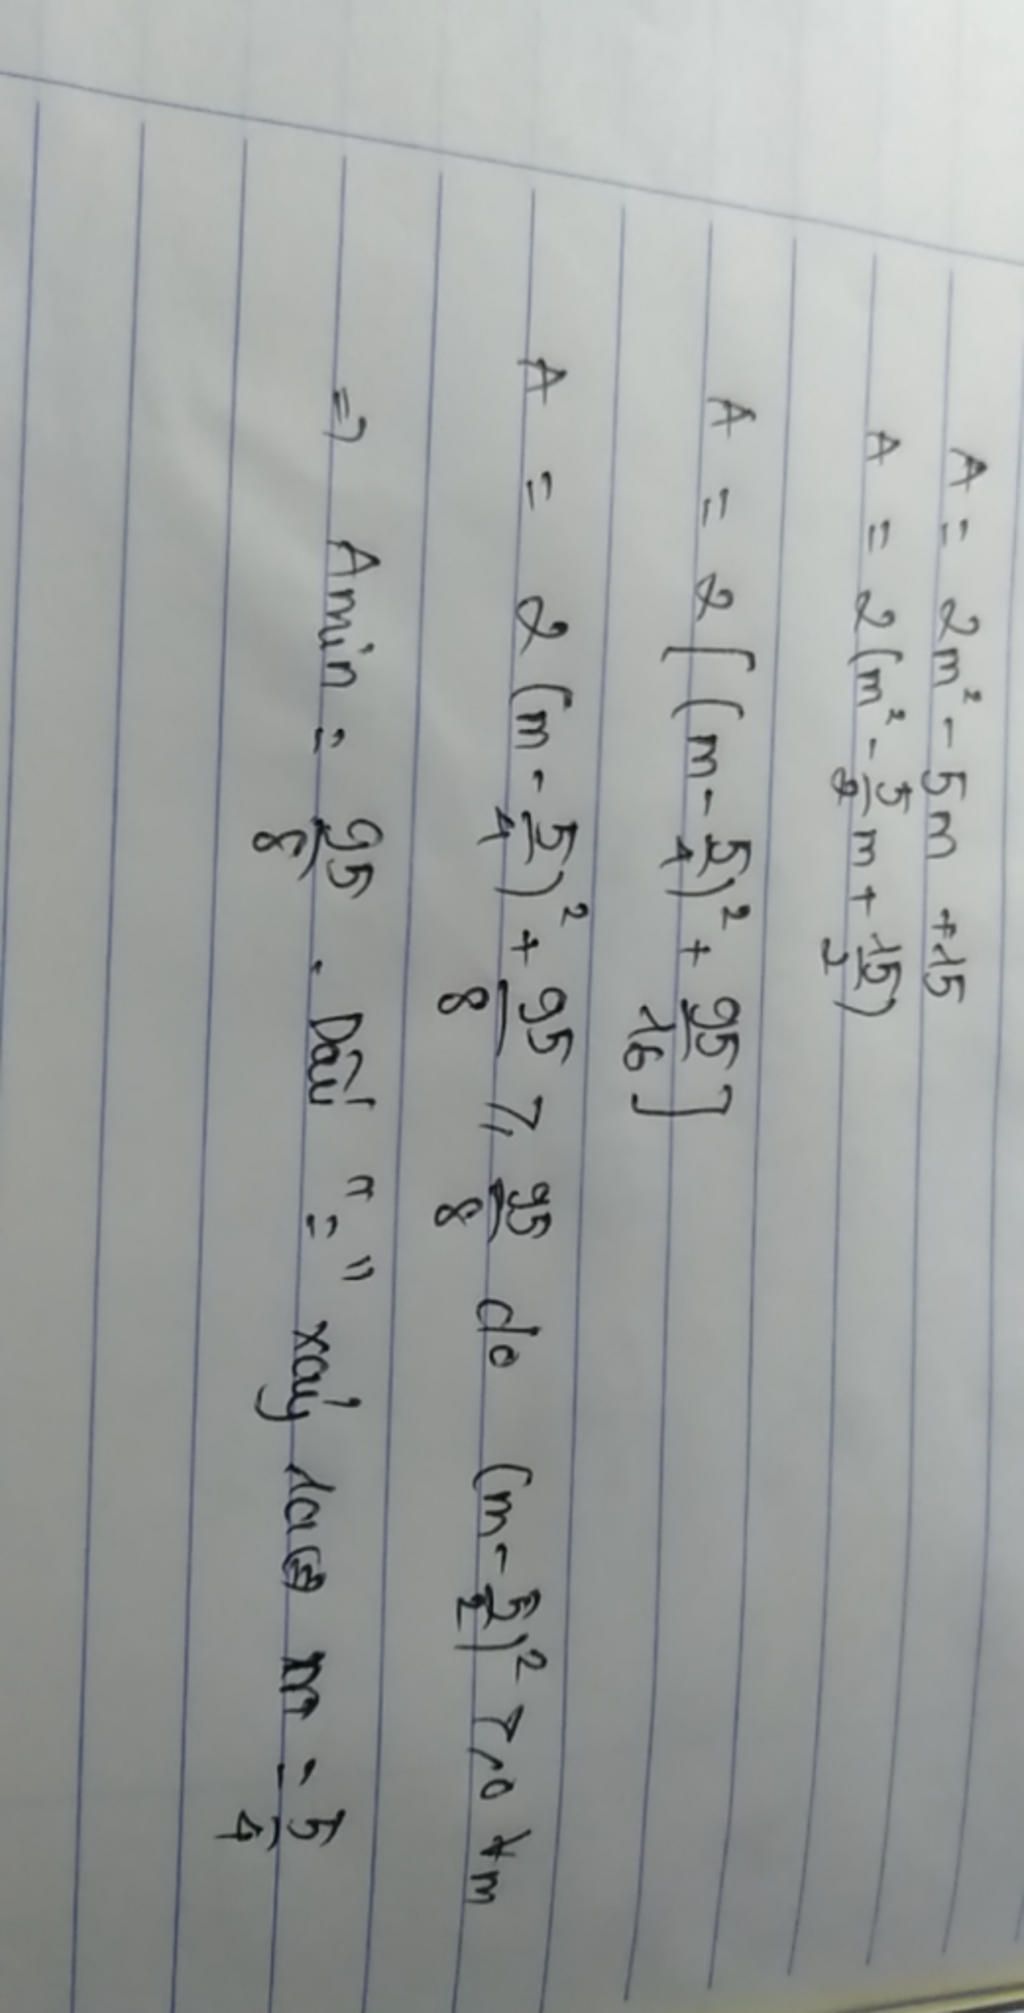 A = 2m² - 5m + 15
A = 2(m² - 5/2 m + 15/2)
A = 2[(m - 5/4)² + 95/16]
A = 2(m - 5/4)² + 95/8 ≥ 95/8 do (m - 5/2)² ≥ 0 ∀m
=> Amin = 95/8 . Dấu "=" xảy ra <=> m = 5/4